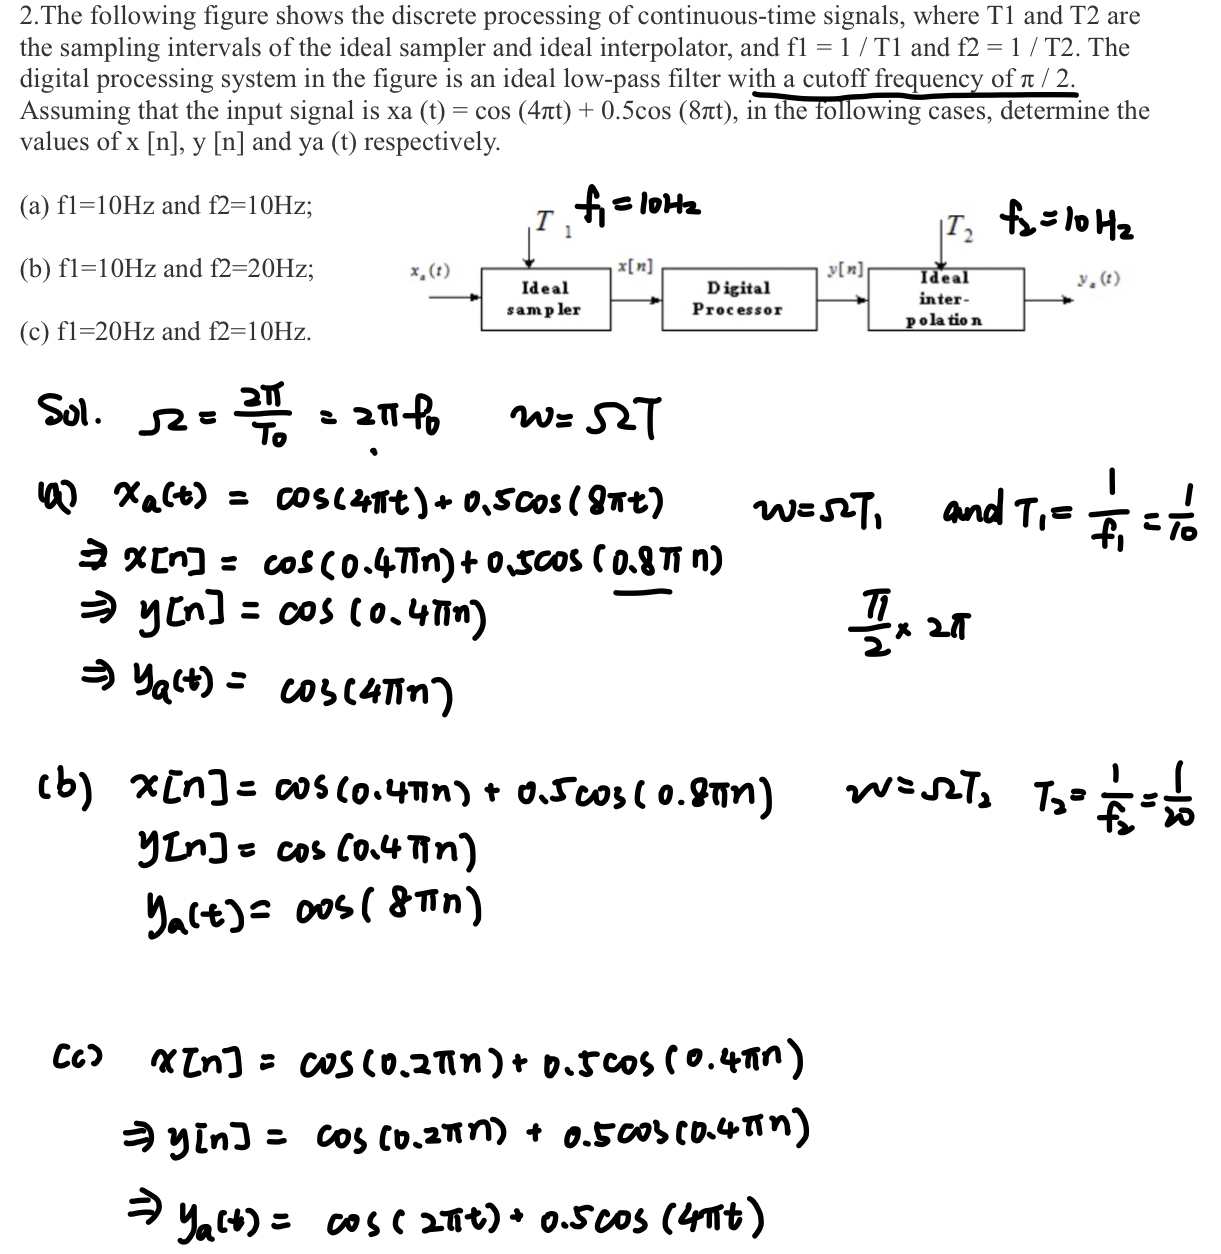 2.The following figure shows the discrete processing of continuous-time signals, where T1 and T2 are
the sampling intervals of the ideal sampler and ideal interpolator, and f1 = 1 / T1 and f2 = 1 / T2. The
digital processing system in the figure is an ideal low-pass filter with a cutoff frequency of π / 2.
Assuming that the input signal is xa (t) = cos (4πt) + 0.5cos (8πt), in the following cases, determine the
values of x [n], y [n] and ya (t) respectively.
(a) f1=10Hz and f2=10Hz;
(b) f1=10Hz and f2=20Hz;
(c) f1=20Hz and f2=10Hz.
T₁ f₁=10Hz
T₂ f₂=10Hz
xₐ(t)
Ideal
sampler
x[n]
Digital
Processor
y[n]
Ideal
inter-
polation
yₐ(t)
Sol. Ω = 2π/T₀ = 2πf₀ w= ΩT
(a) xₐ(t) = cos(4πt)+0.5cos(8πt) w=ΩT₁ and T₁= 1/f₁ = 1/10
⇒ x[n] = cos(0.4πn)+0.5cos(0.8πn)
⇒ y[n] = cos(0.4πn) π/2 × 2π
⇒ yₐ(t) = cos(4πn)
(b) x[n]= cos(0.4πn) + 0.5cos(0.8πn) w=ΩT₂ T₂= 1/f₂ = 1/20
y[n]= cos(0.4πn)
yₐ(t)= cos(8πn)
(c) x[n] = cos(0.2πn)+ 0.5cos(0.4πn)
⇒ y[n] = cos(0.2πn) + 0.5cos(0.4πn)
⇒ yₐ(t) = cos(2πt)+ 0.5cos(4πt)